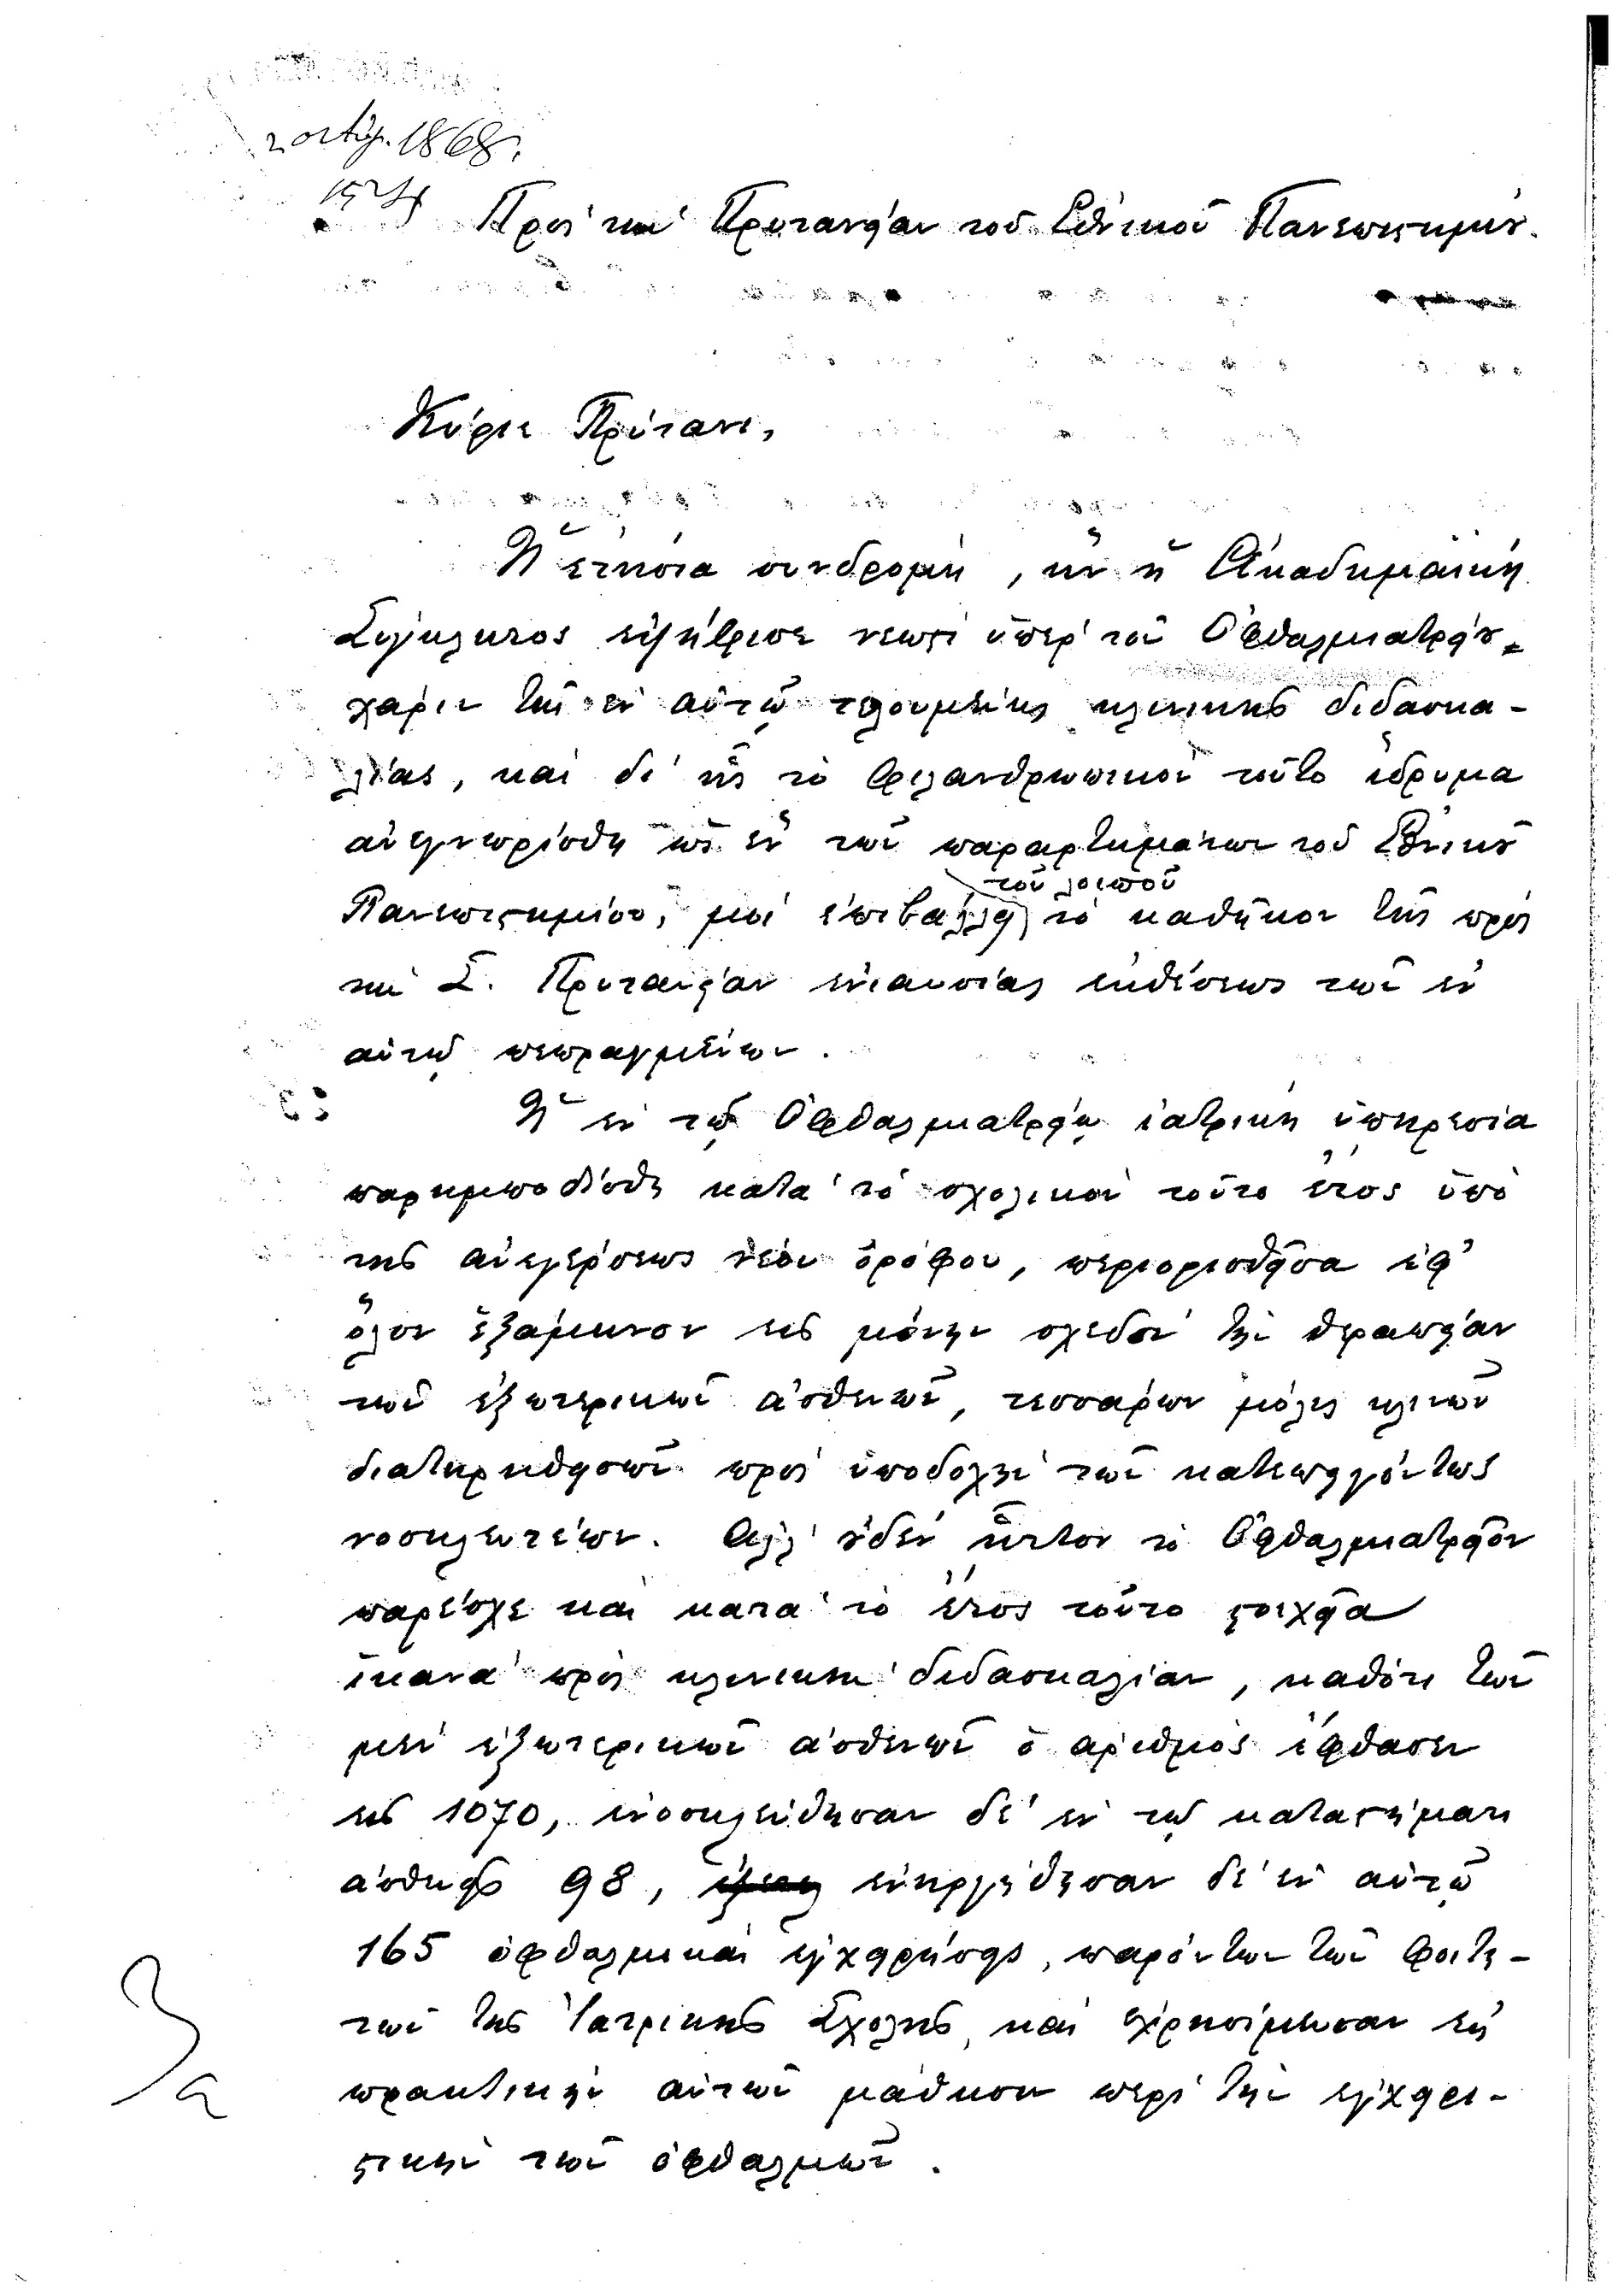 2 οκτωβ. 1868.
Πρὸς τὴν Πρυτανείαν τοῦ Ἐθνικοῦ Πανεπιστημίου.
Κύριε Πρύτανι,
Ἡ ἐτησία συνδρομὴ, ἣν ἡ Ἀκαδημαϊκὴ
Σύγκλητος ἐψήφισε νεωστὶ ὑπὲρ τοῦ Ὀφθαλμιατρείου
χάριν τῆς ἐν αὐτῷ τελουμένης κλινικῆς διδασκα-
λίας, καὶ δι' ἧς τὸ φιλανθρωπικὸν τοῦτο ἵδρυμα
ἀνεγνωρίσθη ὡς ἓν τῶν παραρτημάτων τοῦ Ἐθνικοῦ
τοῦ λοιποῦ
Πανεπιστημίου, μοὶ ἐπιβάλλει τὸ καθῆκον τῆς πρὸς
τὴν Σ. Πρυτανείαν ἐνιαυσίας ἐκθέσεως τῶν ἐν
αὐτῷ πεπραγμένων.
Ἡ ἐν τῷ Ὀφθαλμιατρείῳ ἰατρικὴ ὑπηρεσία
παρημποδίσθη κατὰ τὸ σχολικὸν τοῦτο ἔτος ὑπὸ
τῆς ἀνεγέρσεως νέου ὀρόφου, περιορισθεῖσα ἐφ'
ὅλον ἑξάμηνον εἰς μόνην σχεδὸν τὴν θεραπείαν
τῶν ἐξωτερικῶν ἀσθενῶν, τεσσάρων μόλις κλινῶν
διατηρηθεισῶν πρὸς ὑποδοχὴν τῶν κατεπειγόντως
νοσηλευτέων. Ἀλλ' οὐδὲν ἧττον τὸ Ὀφθαλμιατρεῖον
παρέσχε καὶ κατὰ τὸ ἔτος τοῦτο στοιχεῖα
ἱκανὰ πρὸς κλινικὴν διδασκαλίαν, καθότι τῶν
μὲν ἐξωτερικῶν ἀσθενῶν ὁ ἀριθμὸς ἔφθασεν
εἰς 1070, ἐνοσηλεύθησαν δὲ ἐν τῷ καταστήματι
ἀσθενεῖς 98, ἐνηργήθησαν δὲ ἐν αὐτῷ
165 ὀφθαλμικαὶ ἐγχειρήσεις, παρόντων τῶν φοιτη-
τῶν τῆς Ἰατρικῆς Σχολῆς, καὶ ἐχρησίμευσαν εἰς
πρακτικὴν αὐτῶν μάθησιν περὶ τὴν ἐγχειρι-
στικὴν τῶν ὀφθαλμῶν.